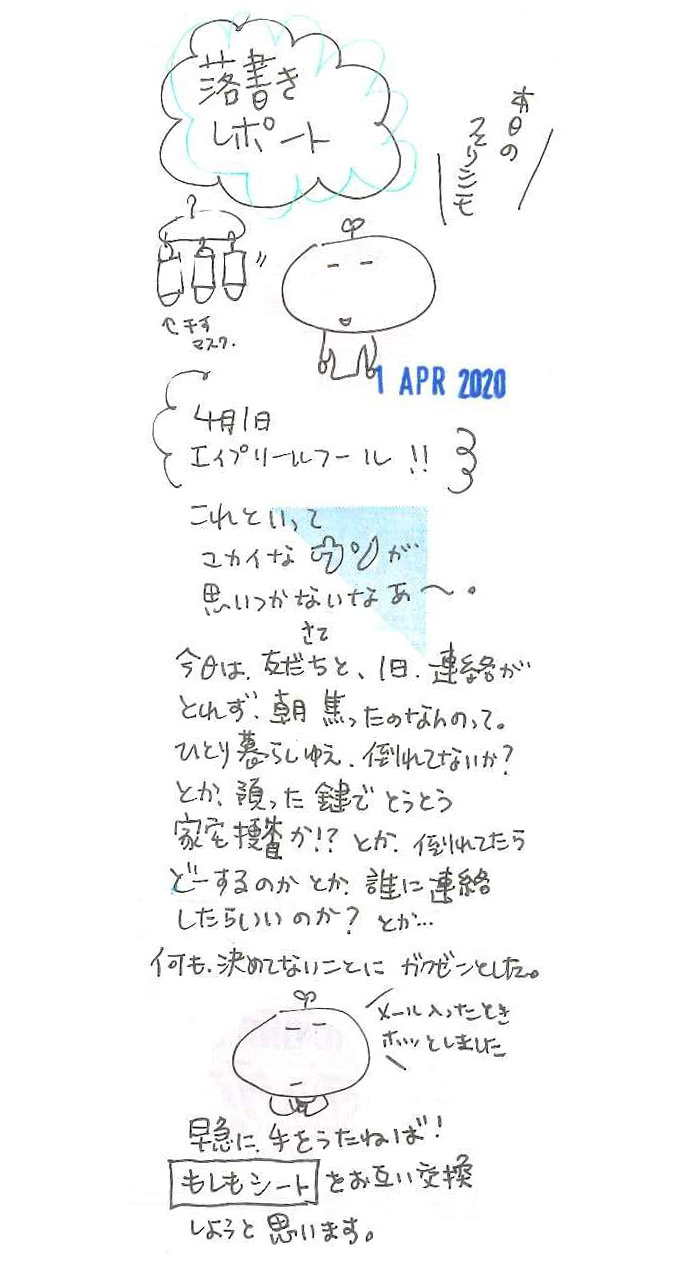 落書き
レポート
本日の
マスク
←干す
マスク.
1 APR 2020
4月1日
エイプリールフール!!
これといって
ユカイな ウソが
思いつかないなあ〜。
さて
今日は、友だちと、1日、連絡が
とれず、朝 焦ったのなんのって。
ひとり暮らしゆえ、倒れてないか?
とか、預った 鍵で とうとう
家宅捜査か!? とか、倒れてたら
どーするのか とか、誰に連絡
したらいいのか? とか…
何も、決めてないことに ガクゼンとした。
メール入ったとき
ホッとしました
早急に、手をうたねば!
もしもシート をお互い交換
しようと思います。